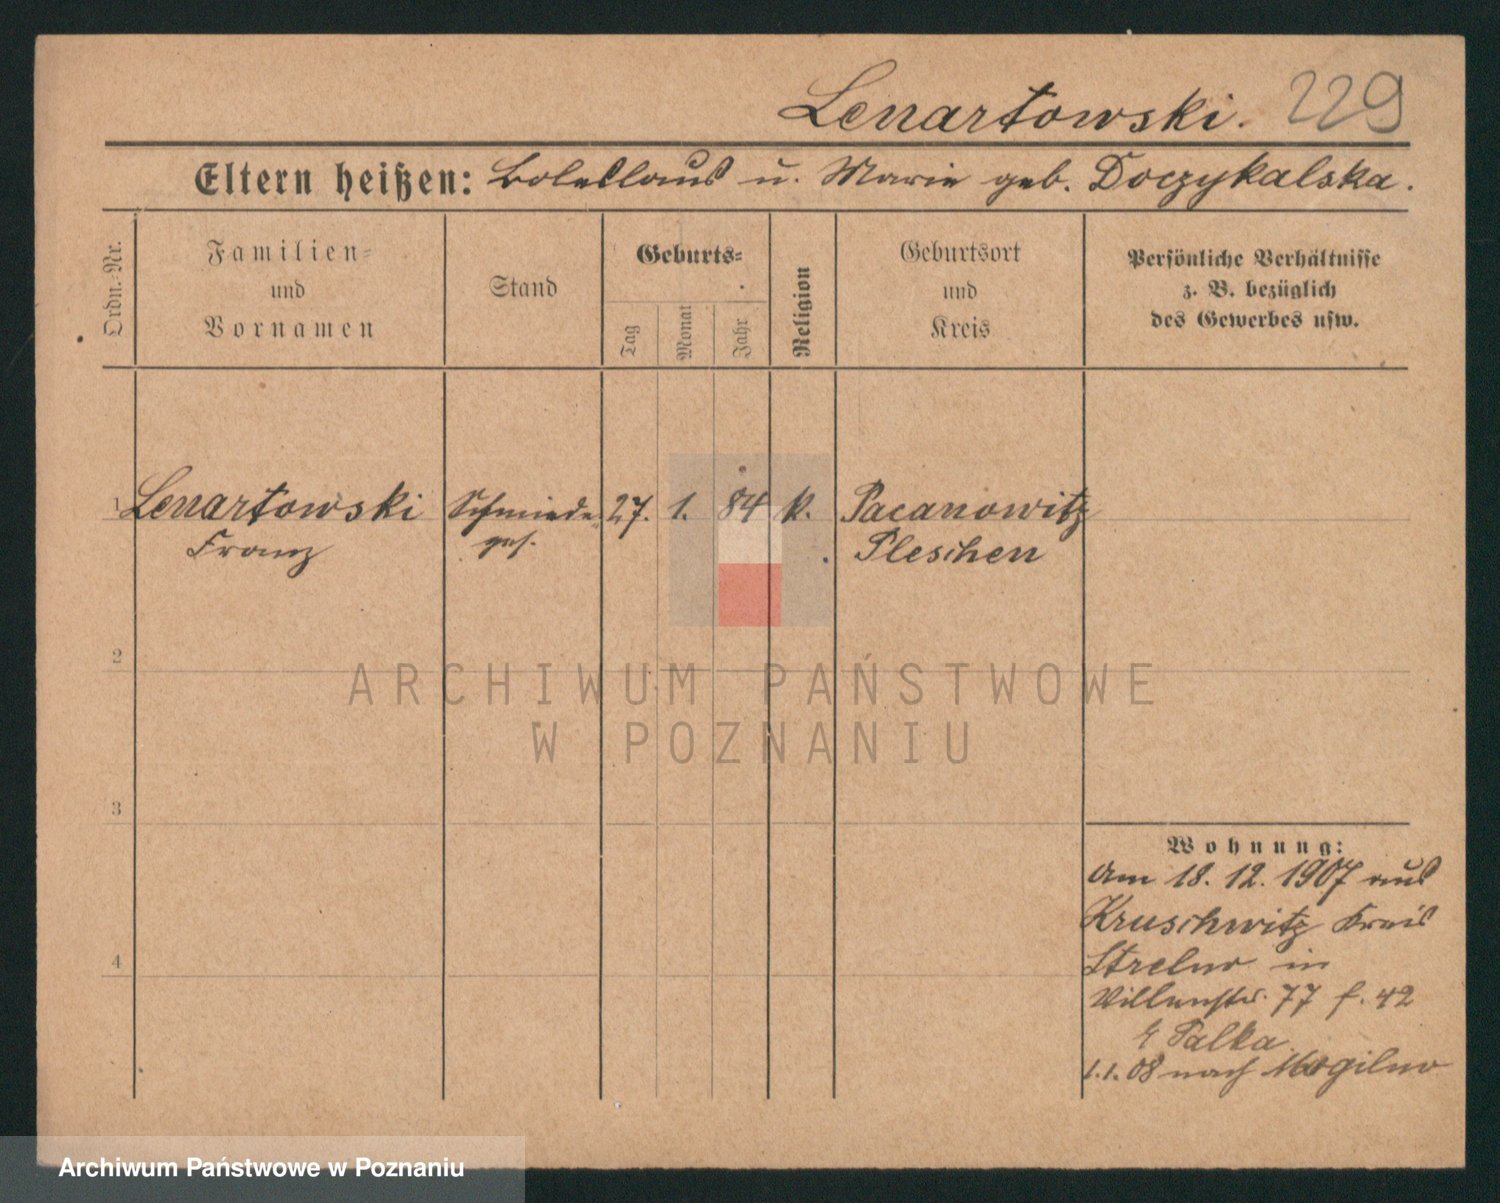 Lenartowski. 229
Eltern heißen: Boleslaus u. Marie geb. Doczykalska.
Ordn.-Nr.
Familien-
und
Vornamen
Stand
Geburts-
Tag
Monat
Jahr
Religion
Geburtsort
und
Kreis
Persönliche Verhältnisse
z. B. bezüglich
des Gewerbes usw.
1 Lenartowski Schmiede 27. 1. 84 k. Pacanowitz
Franz ges. Pleschen
2
ARCHIWUM PAŃSTWOWE
W POZNANIU
3
Wohnung:
Am 18. 12. 1907 aus
Kruschwitz Kreis
4
Strelno in
77 f. 42
Palka
1.1.08 nach Mogilno
Archiwum Państwowe w Poznaniu